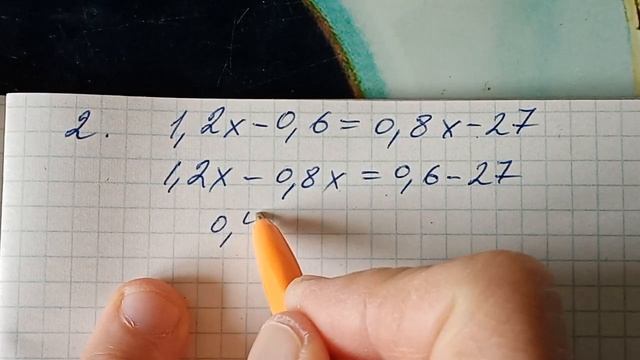 2. 1,2x-0,6=0,8x-27
1,2x-0,8x=0,6-27
0,4